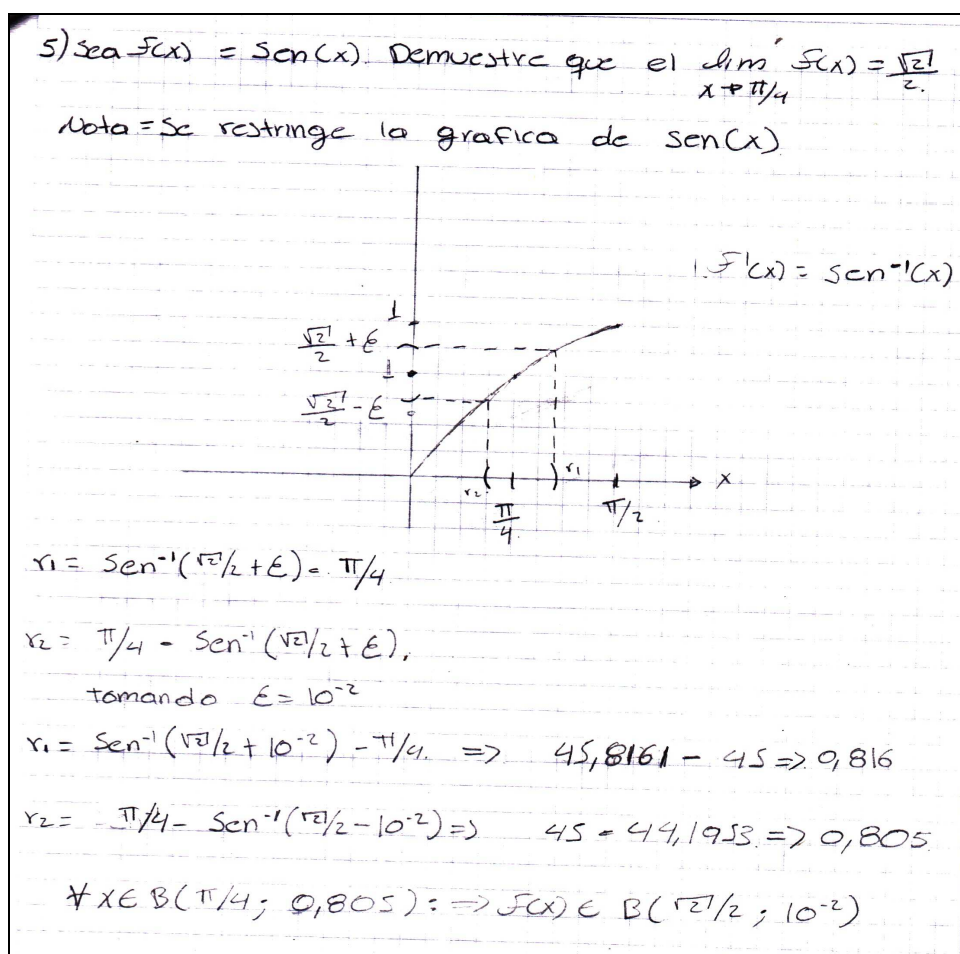 5) Sea f(x) = Sen(x). Demuestre que el lim f(x) = √2/2.
x→π/4
Nota = Se restringe la grafica de sen(x)
1. f⁻¹(x) = sen⁻¹(x)
1
√2/2 + ε
1
√2/2 - ε
r₂ r₁ x
π/4 π/2
r₁ = Sen⁻¹(√2/2 + ε) - π/4
r₂ = π/4 - Sen⁻¹(√2/2 + ε).
tomando ε = 10⁻²
r₁ = Sen⁻¹(√2/2 + 10⁻²) - π/4. => 45,8161 - 45 => 0,816
r₂ = π/4 - Sen⁻¹(√2/2 - 10⁻²) => 45 - 44,1953 => 0,805
∀ x ∈ B(π/4; 0,805): => f(x) ∈ B(√2/2; 10⁻²)